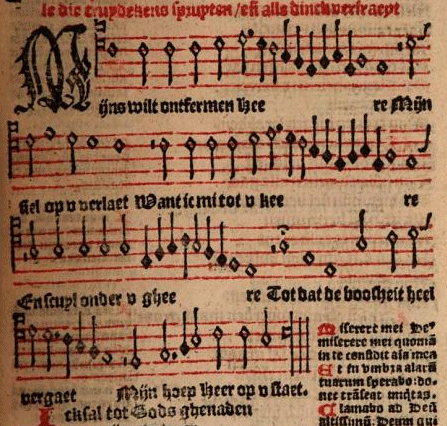 le die cruydekens spruyten/eñ alle dinck verfraeyt
Mijns wilt ontfermen hee re Mijn
siel op v verlaet Want ic mi tot v kee re
En scuyl onder v ghee re Tot dat de boosheit heel
vergaet Mijn hoep Heer op v staet.
Ick sal tot Gods ghenaden
Miserere mei De⁹
miserere mei quoniā
in te confidit aīa mea
Et in vmbra alarū
tuarum sperabo: do-
nec trāseat iniq̄tas.
Clamabo ad Deū
altissimū: Deum qui